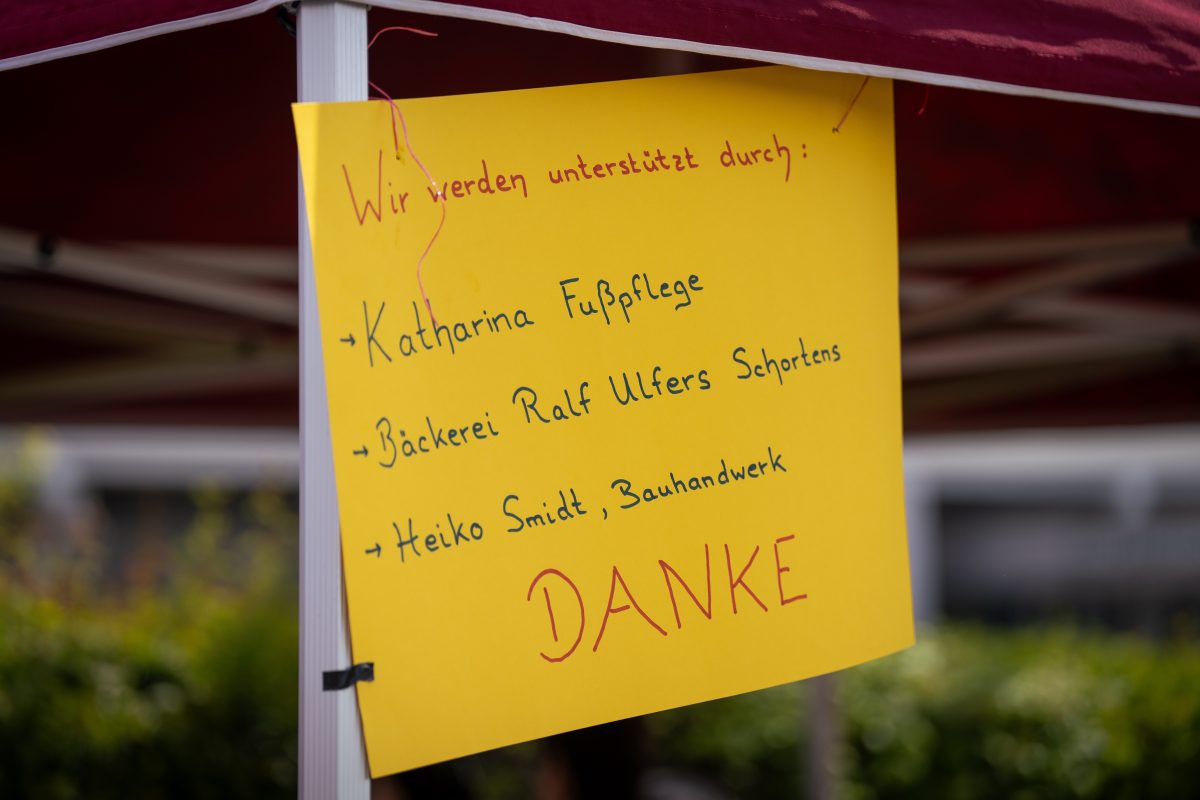 Wir werden unterstützt durch:
→ Katharina Fußpflege
→ Bäckerei Ralf Ulfers Schortens
→ Heiko Smidt, Bauhandwerk
DANKE